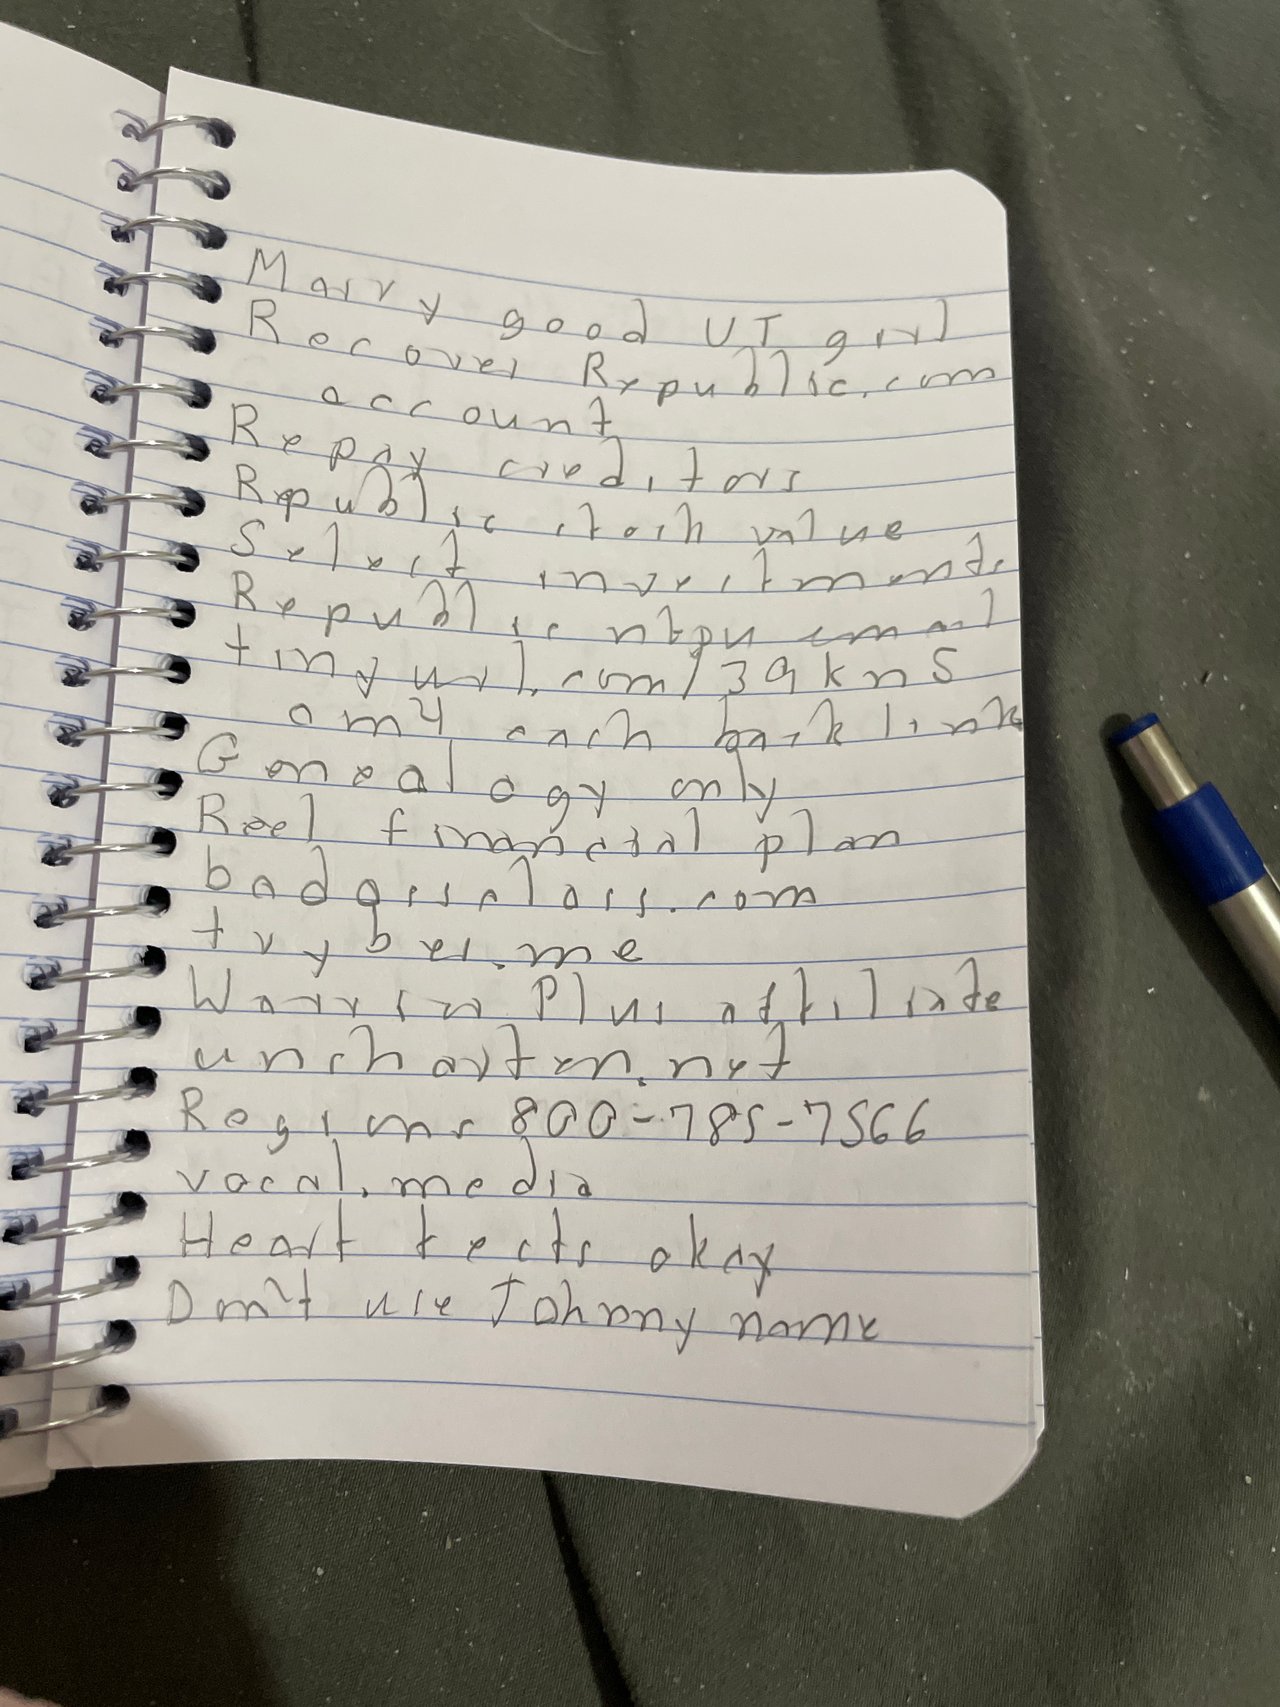 Marry good UT girl
Recover Republic.com
account
Repay creditors
Republic stock value
Select investments
Republic email
tinyurl.com/39knS
each backlink
Genealogy only
Reel financial plan
badassalass.com
trybes.me
Warrior Plus affiliate
uncharten.net
Regions 800-785-7566
vocal.media
Heart tests okay
Don't use Johnny name